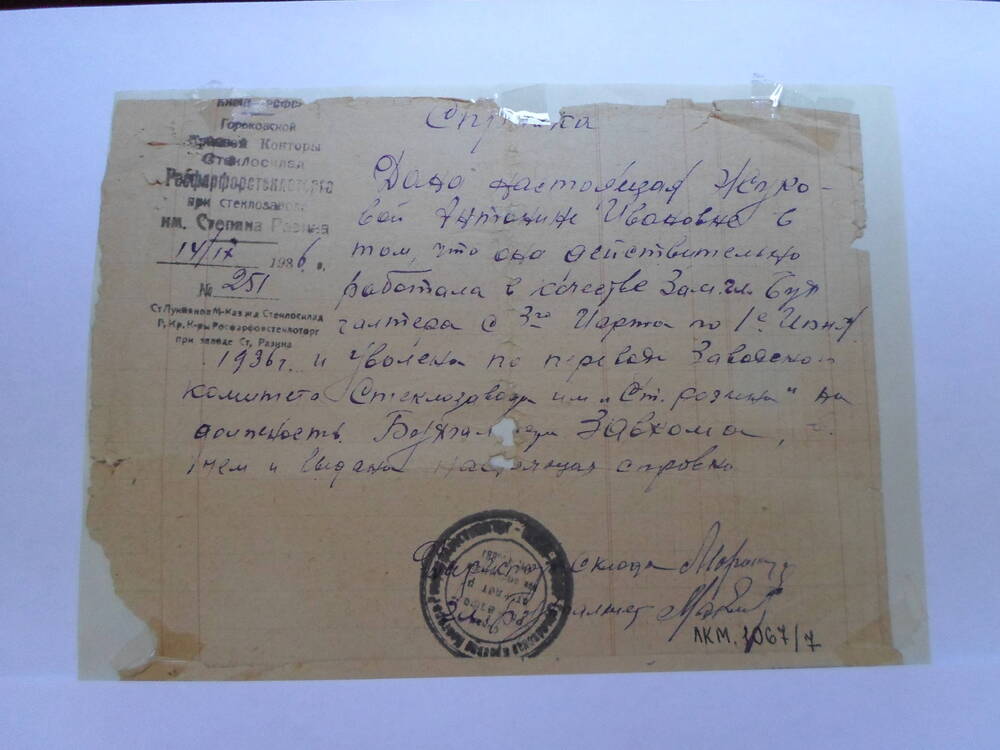 Горьковской
Краевой Конторы
Стеклосклад
Росфарфорстеклоторга
при стеклозаводе
им. Степана Разина
14/IX 1936 г.
№ 251
Ст. Лукьяново М-Каз жд Стеклосклад
Г. Кр. К-ры Росфарфорстеклоторг
при заводе Ст. Разина
Справка
Дана настоящая Журо-
вой Антонине Ивановне в
том, что она действительно
работала в качестве Зам. гл. Бух
галтера с 3го Марта по 1е Июня
1936 г. и уволена по перевод Заводской
комитета Стеклозавода им „Ст. разина" на
должность Бухгалтера Завкома,
чем и выдана настоящая справка
Директор склада
Гл. Бухгалтер
ЛКМ. 1067/7